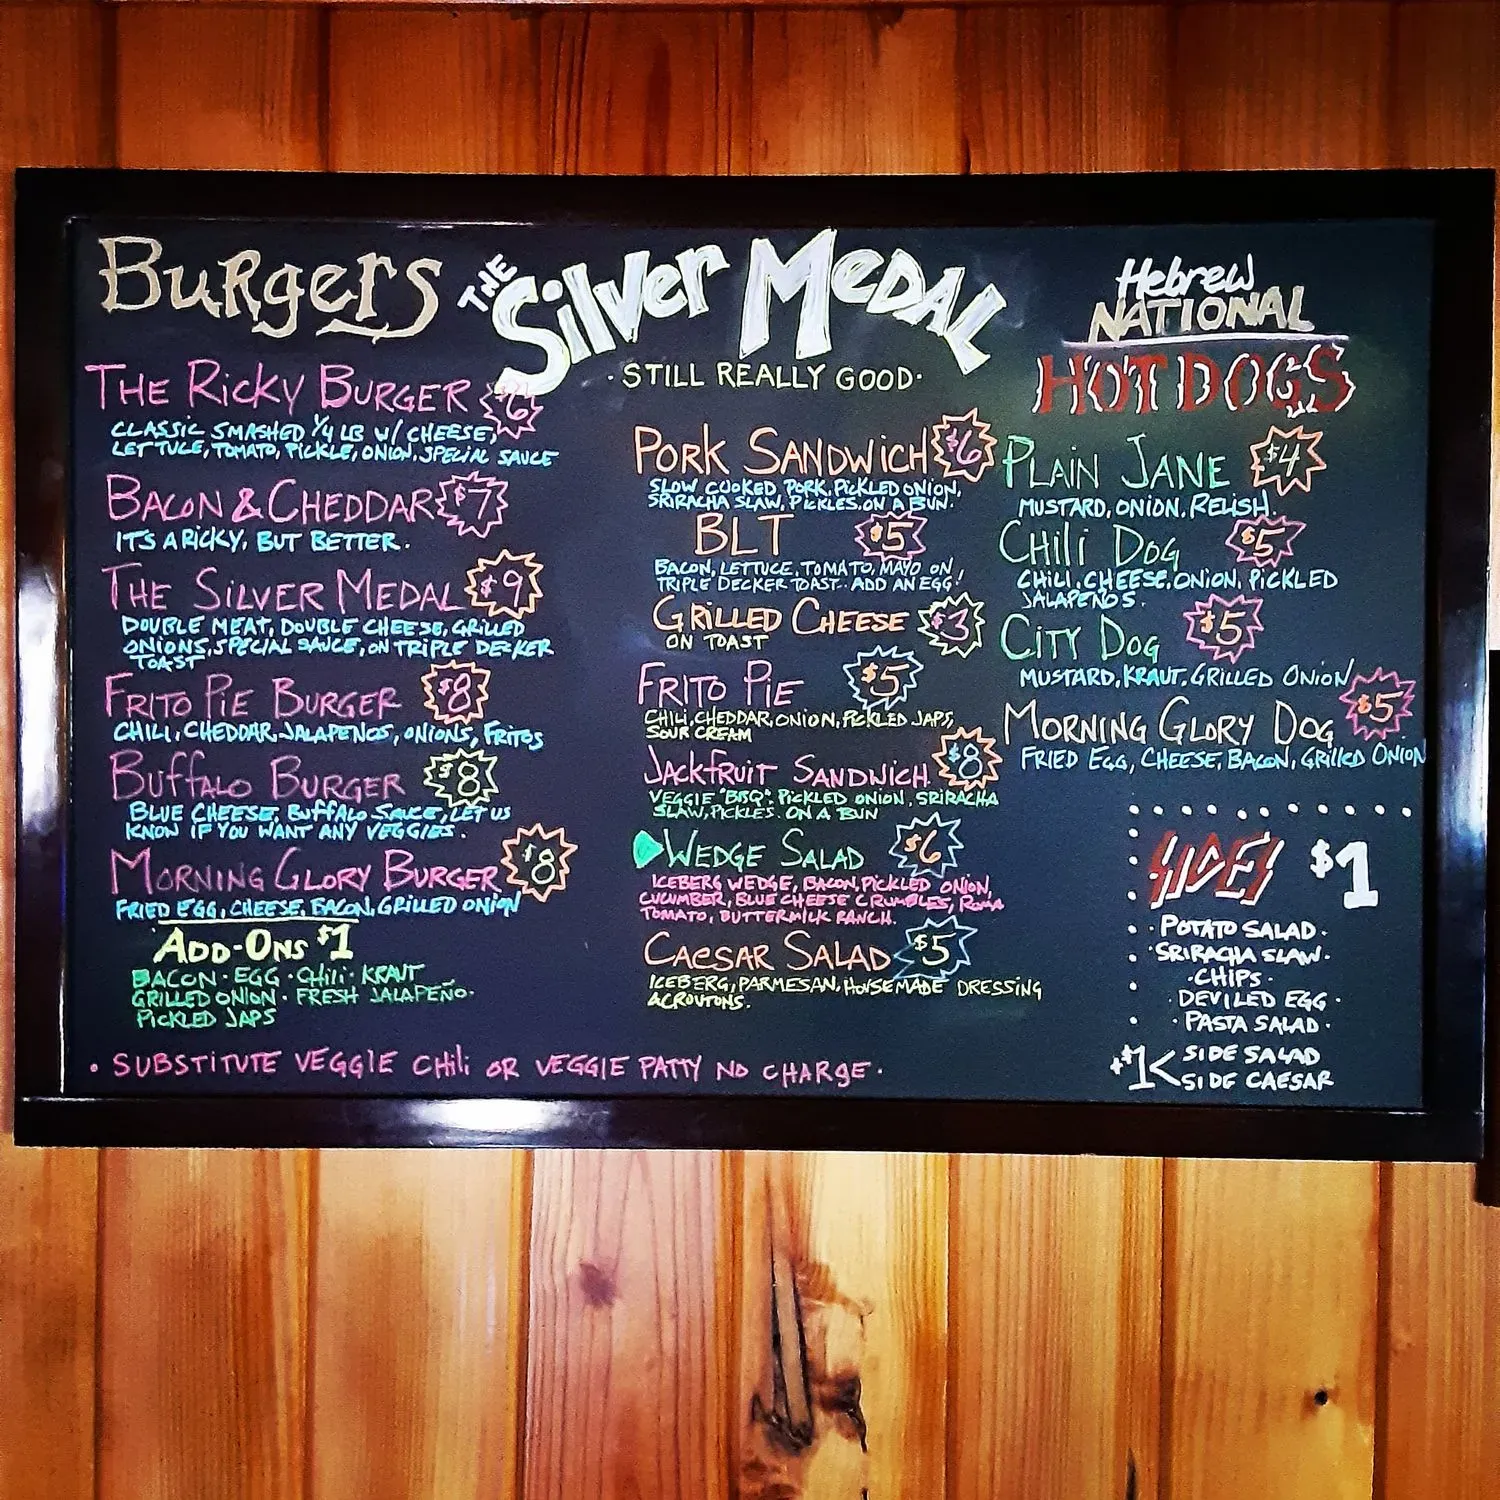 Burgers
THE RICKY BURGER $6
CLASSIC SMASHED 1/4 LB W/ CHEESE,
LETTUCE, TOMATO, PICKLE, ONION, SPECIAL SAUCE
BACON & CHEDDAR $7
ITS A RICKY, BUT BETTER.
THE SILVER MEDAL $9
DOUBLE MEAT, DOUBLE CHEESE, GRILLED
ONIONS, SPECIAL SAUCE, ON TRIPLE DECKER
TOAST
FRITO PIE BURGER $8
CHILI, CHEDDAR, JALAPENOS, ONIONS, FRITOS
BUFFALO BURGER $8
BLUE CHEESE, BUFFALO SAUCE, LET US
KNOW IF YOU WANT ANY VEGGIES.
MORNING GLORY BURGER $8
FRIED EGG, CHEESE, BACON, GRILLED ONION
ADD-ONS $1
BACON · EGG · CHILI · KRAUT
GRILLED ONION · FRESH JALAPEÑO ·
PICKLED JAPS
· SUBSTITUTE VEGGIE CHILI OR VEGGIE PATTY NO CHARGE ·
THE SILVER MEDAL
· STILL REALLY GOOD ·
PORK SANDWICH $6
SLOW COOKED PORK, PICKLED ONION,
SRIRACHA SLAW, PICKLES. ON A BUN.
BLT $5
BACON, LETTUCE, TOMATO, MAYO ON
TRIPLE DECKER TOAST. ADD AN EGG!
GRILLED CHEESE $3
ON TOAST
FRITO PIE $5
CHILI, CHEDDAR, ONION, PICKLED JAPS,
SOUR CREAM
JACKFRUIT SANDWICH $8
VEGGIE "BBQ", PICKLED ONION, SRIRACHA
SLAW, PICKLES. ON A BUN
WEDGE SALAD $6
ICEBERG WEDGE, BACON, PICKLED ONION,
CUCUMBER, BLUE CHEESE CRUMBLES, ROMA
TOMATO, BUTTERMILK RANCH.
CAESAR SALAD $5
ICEBERG, PARMESAN, HOUSEMADE DRESSING
& CROUTONS.
Hebrew
NATIONAL
HOT DOGS
PLAIN JANE $4
MUSTARD, ONION, RELISH.
CHILI DOG $5
CHILI, CHEESE, ONION, PICKLED
JALAPEÑOS.
CITY DOG $5
MUSTARD, KRAUT, GRILLED ONION
MORNING GLORY DOG $5
FRIED EGG, CHEESE, BACON, GRILLED ONION
SIDES $1
· POTATO SALAD ·
· SRIRACHA SLAW ·
· CHIPS ·
· DEVILED EGG ·
· PASTA SALAD ·
+$1 < SIDE SALAD
SIDE CAESAR